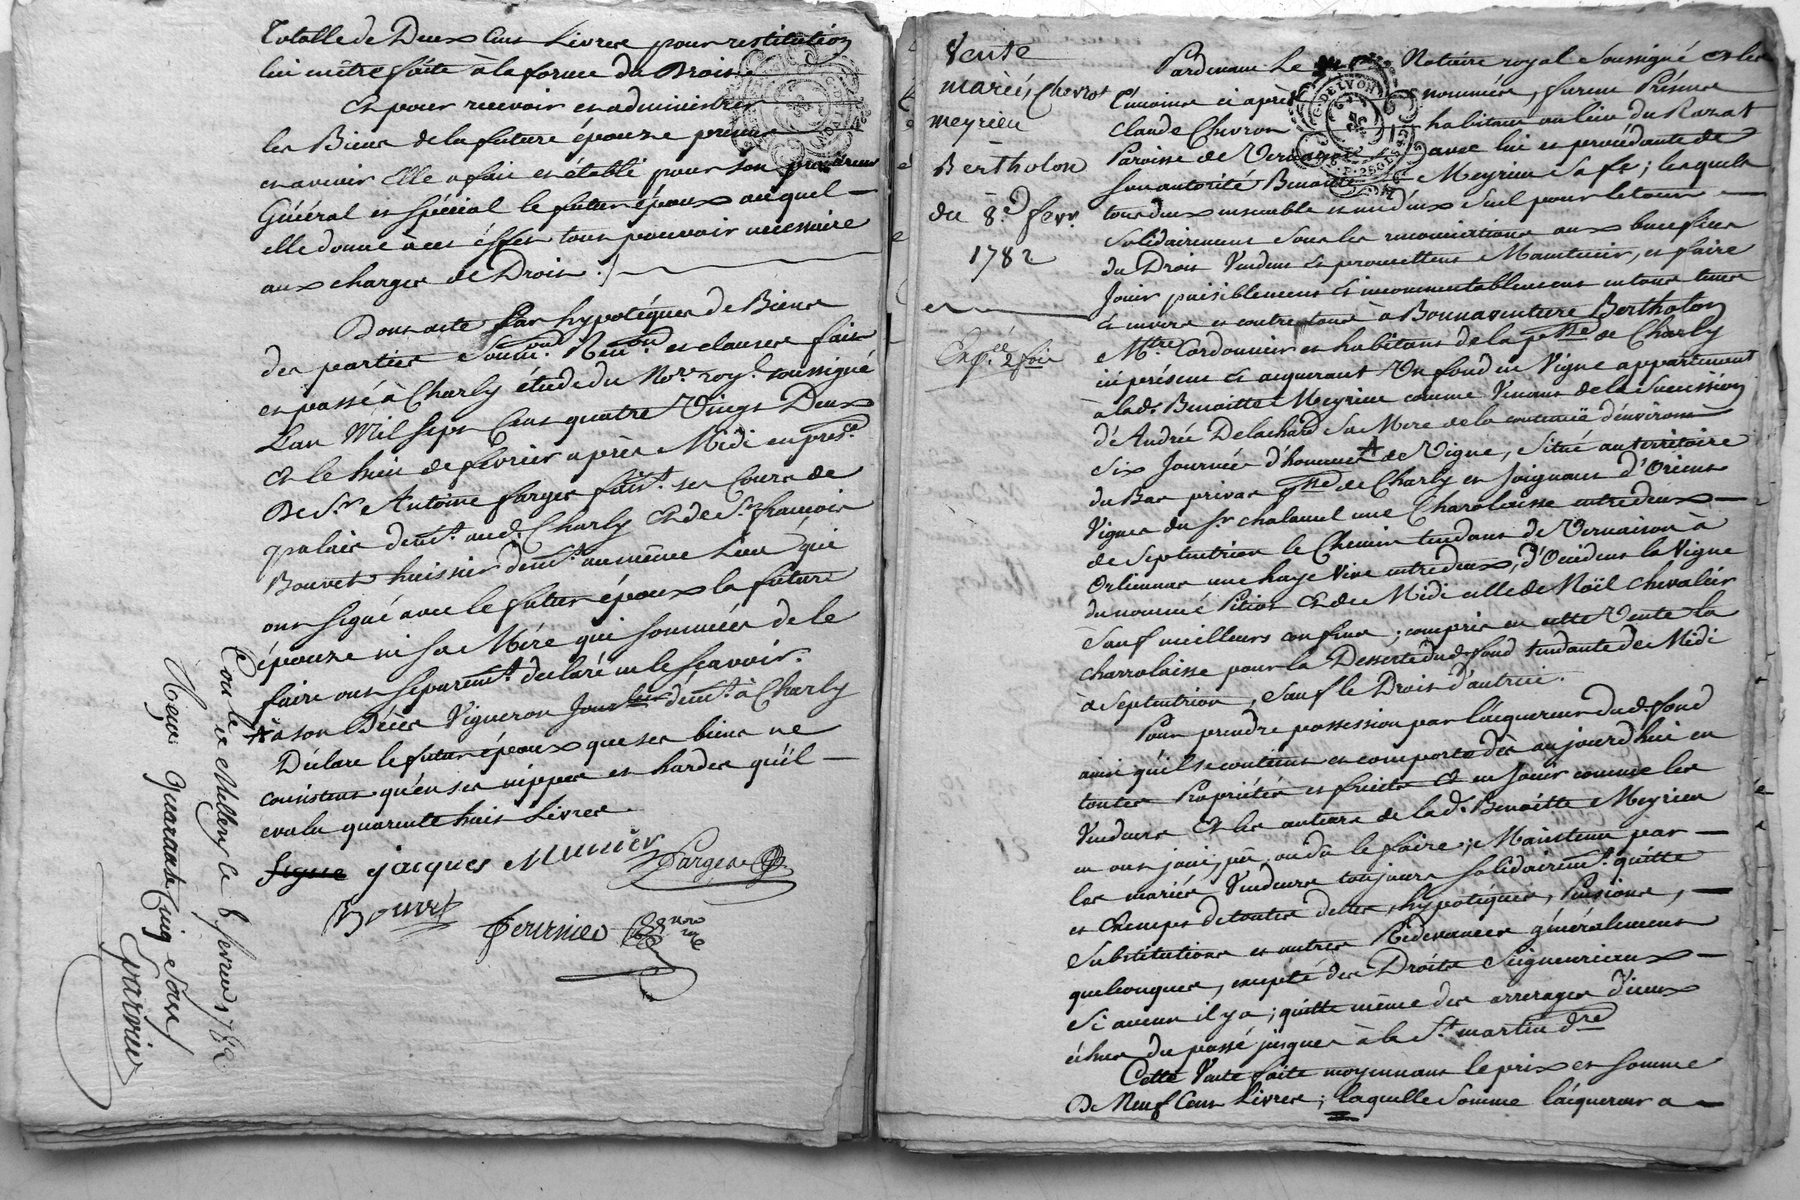 totalle de Deux Cens Livres pour restitution
lui en être faite à la forme du Droit
Et pour recevoir et administrer
les Biens de la future épouze present
et avenir elle a fait et établi pour son procureur
Général et spécial le futur époux auquel
elle donne à cet éffet tout pouvoir necessaire
aux charges de Droit ./
Dont acte par hypotéques de Biens
des parties Soum.on Ren.on et clauses fait
et passé à Charly étude du No.re roy.l soussigné
L'an Mil Sept Cent quatre Vingt Deux
et le huit de fevrier après Midi en pres.ce
De S.r Antoine farges fais.t ses Cours de
palais dem.t aud. Charly et de S.r françois
Bouvet huissier dem.t au même Lieu qui
ont signé avec le futur époux la future
épouze ni sa Mére qui sommées de le
faire ont séparem.t declaré ne le sçavoir.
A a son Décès Vigneron Jour.lier dem.t à Charly
Déclare le futur époux que ses biens ne
consistent qu'en ses nippes et hardes qu'il
evalu quarente huit Livres
signe jacques Munièr
Farges
Bouvet
fournier no.re roy
Con.lé à Millery le 8 fevrier 1782
Reçu quarante Cinq Sols
Vente
mariés Chevrot
meyrieu
à
Bertholon
du 8.e fevr.
1782
Exp.ée 2 fois
G. DE LYON
Pardevant Le Notaire royal Soussigné et les
témoins ci après nommés, furent Présens
Claude Chevron habitant au lieu du Razat
Paroisse de Vernaison avec lui et procédante de
son autorité Benoitte Meyrieu Sa fe; lesquels
tous deux ensemble et un d'eux Seul pour le tout
Solidairement Sous les renonciations aux benefices
du Droit Vendent et promettent Maintenir, et faire
Jouir paisiblement et incommutablement en tous tems
et envers et contre tous à Bonnaventure Bertholon
M.tre Cordonnier et habitant de la p.sse de Charly
ici présent et acquerant Un fond en Vigne appartenant
à lad. Benoitte Meyrieu comme Venant de la Succession
d'Andrée Delachard Sa Mere de la contenuë d'environ
Six Journées d'hommes A de Vigne, Situé au territoire
du Bas privas p.sse de Charly et Joignant d'Orient
Vignes du S.r chalamel une Charolaisse entre deux
de Septentrion le Chemin tendant de Vernaison à
Orlienas une haye Vive entre deux, D'Occident la Vigne
du nommé Pition et de Midi celle de Noël Chevalier
Sauf meilleurs confins; compris en cette Vente la
charrolaisse pour la Desserte dud. fond tendante de Midi
à Septentrion, Sauf le Droit d'autrui.
Pour prendre possession par l'acquereur dud. fond
ainsi qu'il se contient et comporte dès aujourd'hui en
toutes Propriétés et fruits Et en Jouir comme les
Vendeurs et les auteurs de lad. Benoitte Meyrieu
en ont joui, pû, ou dû le faire; Maintenu par
les mariés Vendeurs toujours Solidairem.t quitte
et exempt de toutes dettes, hypotéques, Pensions,
Substitutions et autres Redevances généralement
quelconques, excepté des Droits Seigneuriaux
Si aucun il y a; quitte même des arrerages d'iceux
échus du passé jusques à la S.t martin d.re
Cette Vente faite moyennant le prix et somme
De Neuf Cent Livres; laquelle Somme l'acquereur a